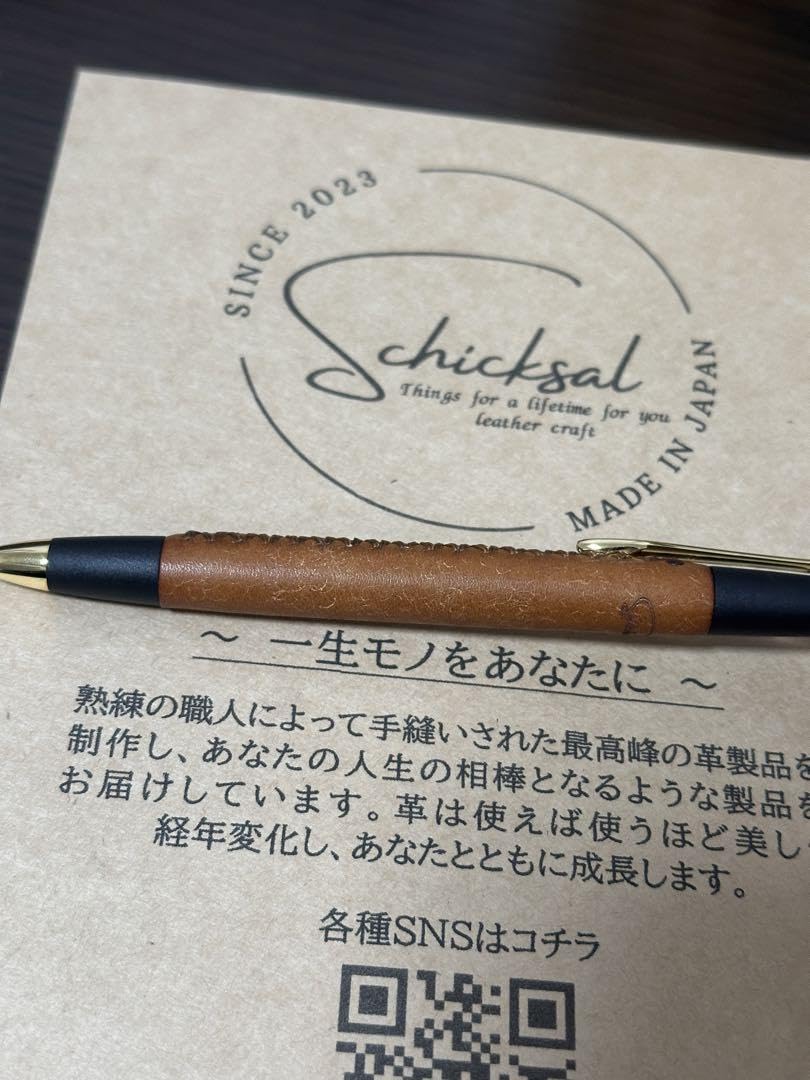 SINCE 2023
Schicksal
Things for a lifetime for you
leather craft
MADE IN JAPAN
～ 一生モノをあなたに ～
熟練の職人によって手縫いされた最高峰の革製品を
制作し、あなたの人生の相棒となるような製品を
お届けしています。革は使えば使うほど美し
経年変化し、あなたとともに成長します。
各種SNSはコチラ